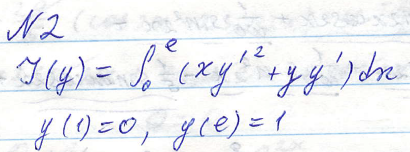 N2
J(y) = ∫₀ᵉ (xy'² + yy')dx
y(1)=0, y(e)=1